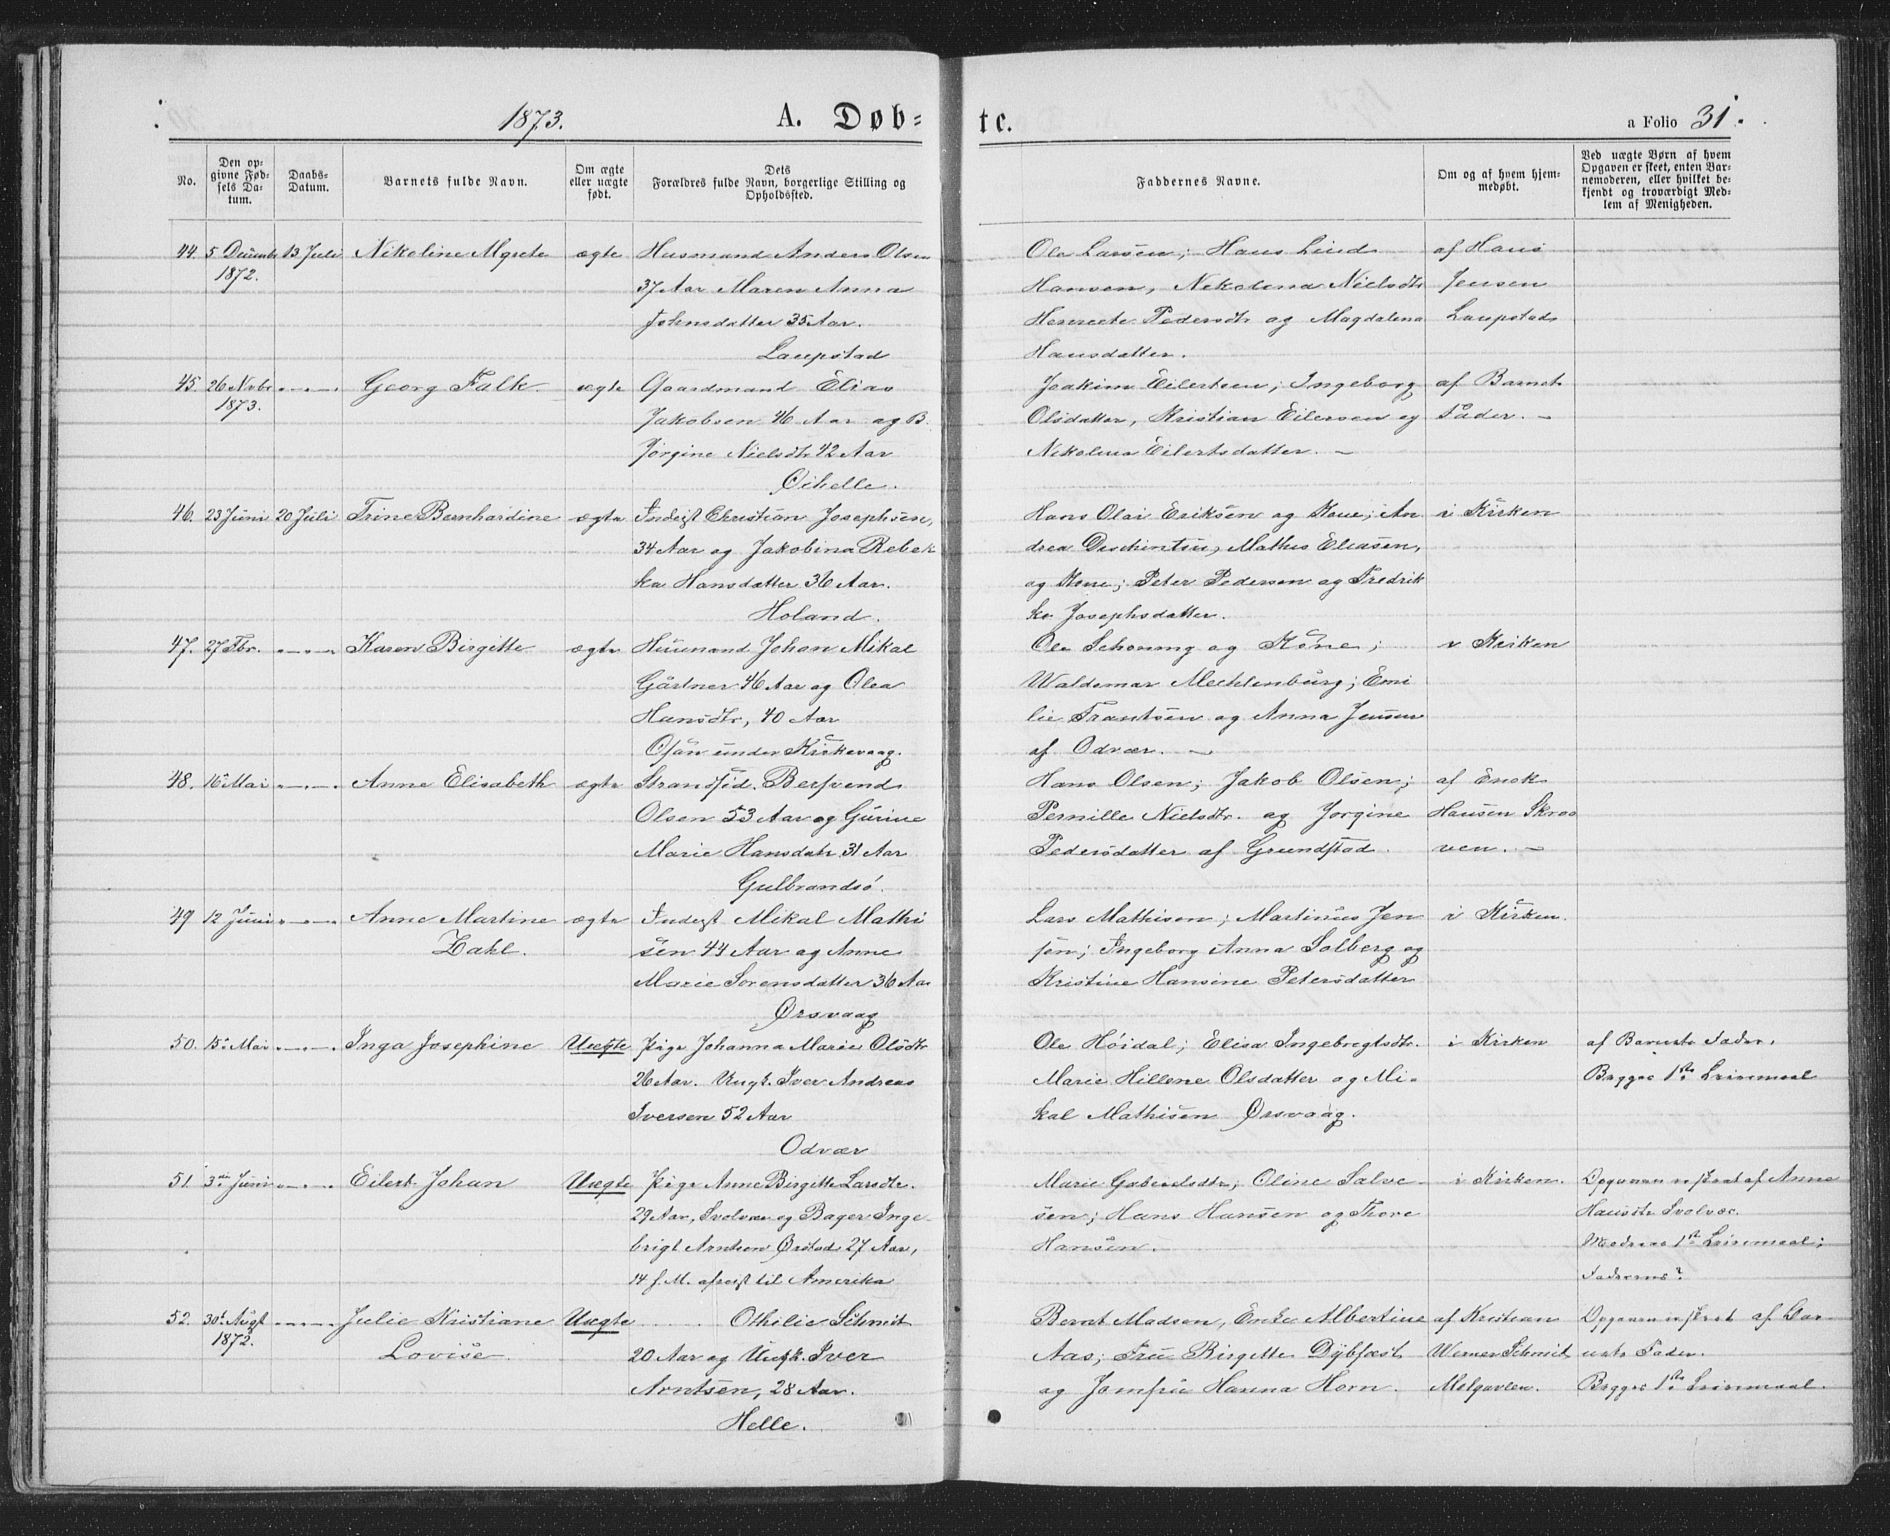 1873.
A. Døb=
te.
a Folio 31.
No.
Den op=
givne Fød=
sels Da=
tum.
Daabs=
Datum.
Barnets fulde Navn.
Om ægte
eller uægte
født.
Dets
Forældres fulde Navn, borgerlige Stilling og
Opholdssted.
Faddernes Navne.
Om og af hvem hjem=
medøbt.
Ved uægte Børn af hvem
Opgaven er skeet, enten Bar=
nemoderen, eller hvilket be=
kjendt og troværdigt Med=
lem af Menigheden.
44. 5 Decembr 13 Juli Nikoline Mgrete ægte Husmand Anders Olsen
1872.
37 Aar Maren Anna
Johnsdatter 35 Aar.
Laupstad
Ole Larsen; Hans Lind af Hans
Hansen, Nekolina Nielsdtr Jensen
Pedersdtr og Magdalena Laupstad
Hansdatter.
45. 26 Nvbr Georg Falk ægte Gaardmand Elias
1873.
Jakobsen 46 Aar og B.
Jørgine Nielsdtr 42 Aar
Øihelle.
Joakim Eilertsen; Ingeborg af Barnets
Olsdatter, Kristian Eilersen og Fader. –
Nikolina Eilertsdatter. –
46. 23 Juni 20 Juli Trine Bernhardine ægte Inderst Christian Josephsen,
34 Aar og Jakobina Rebek
ka Hansdatter 36 Aar.
Holand.
Hans Olai Eriksen og Kone; An i Kirken
drea Mathis Eliasen,
og Kone; Peter Pedersen og Fredrik
ke Josephsdatter.
47. 27 Fbr. Karen Birgitte ægte Johan Mikal
Gårtner 46 Aar og Olea
Hansdtr, 40 Aar
Osan under Kirkevaag.
Ole Schouing og Kone; i Kirken
Waldemar Mechlenburg; Emi
lie Frantsen og Anna Jensen
af Odvær. –
48. 16 Mai Anne Elisabeth ægte Strandsid. Bersvend
Olsen 53 Aar og Gurine
Marie Hansdatr 31 Aar
Gulbrandsø.
Hans Olsen; Jakob Olsen; af Enok
Pernille Nielsdtr. og Jorgine Hansen Skroo
Pedersdatter af Grundstad. ven. –
49 12 Juni Anne Martine ægte Inderst Mikal Mathi
Zahl.
sen 44 Aar og Anne
Marie Sorensdatter 36 Aar
Ørsvaag
Lars Mathisen; Martinus Jen i Kirken.
sen; Ingeborg Anna Solberg og
Kristine Hansine Petersdatter
50. 15. Mai Inga Josephine Uægte Pige Johanna Marie Olsdtr
26 Aar. Ungk. Iver Andreas
Iversen 52 Aar
Odvær
Ole Hóidal; Elisa Ingebregtsdtr. i Kirken af Barnets Fader.
Marie Hillene Olsdatter og Mi- Begges 1ste Leiermaal
kal Mathisen Ørsvaag.
51. 3die Juni Eilert Johan Uægte Pige Anne Birgitte Larsdtr.
29 Aar, Svolvær og Bager Inge-
brigt Arntsen Ørstad 27 Aar,
14 f. M. afreist til Amerika
Marie Gabrielsdtr, Oline Salve- i Kirken. Opgaven er skeet af Anne
sen; Hans Hansen og Thore Hansdtr Svolvær.
Hansen. Modrens 1ste Leiermaal;
Faderens?
52. 30te Augt Julie Kristiane Uægte Othilie Schmit
1872. Lovise.
20 Aar og Ungk. Iver
Arntsen, 28 Aar.
Helle.
Bernt Madsen, Enke Albertine af Kristian Opgaven er skeet af Bar-
Aas; Fru Birgitte Dybfest Werner Schmit nets Fader.
og Jomfru Hanna Horn. Molgavlen. Begges 1ste Leiermaal.